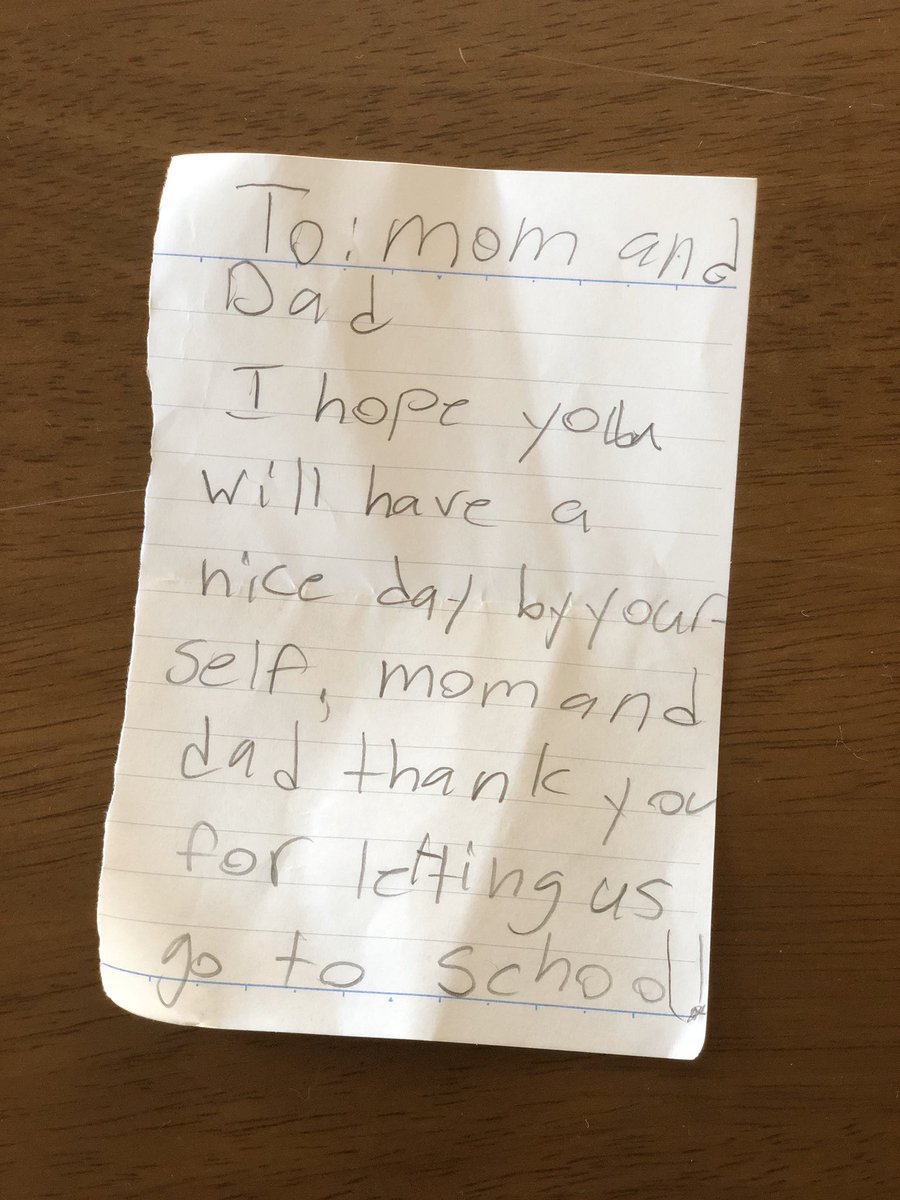 To: mom and
Dad
I hope you
will have a
nice day by your-
self, mom and
dad thank you
for letting us
go to school!